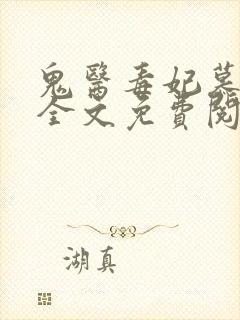 鬼醫毒妃慕
全文免費閱
湖真